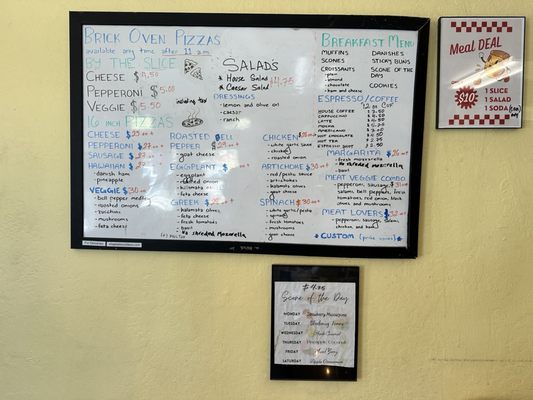 BRICK OVEN PIZZAS
available any time after 11 am
BY THE SLICE
CHEESE $4.50
PEPPERONI $5.00
VEGGIE $5.50
including tax
16 inch PIZZAS
CHEESE $25
PEPPERONI $27
SAUSAGE $27
HAWAIIAN
- danish ham
- pineapple
VEGGIE $30
- bell pepper medley
- roasted onions
- zucchini
- mushrooms
- feta cheese
ROASTED BELL
PEPPER $29
- goat cheese
EGGPLANT
- eggplant
- roasted onion
- kalamata
- feta
- basil
GREEK
- kalamata olives
- feta cheese
- fresh tomatoes
- basil
shredded mozzarella
SALADS
* House Salad
* Caesar Salad
$4.75
DRESSINGS
- lemon and olive oil
- caesar
- ranch
CHICKEN
- white garlic sauce
- chicken
- roasted onion
ARTICHOKE $30
- red/pesto sauce
- artichokes
- kalamata olives
- goat cheese
SPINACH $30
- white garlic/pesto
- spinach
- fresh tomatoes
- mushrooms
- goat cheese
BREAKFAST MENU
MUFFINS
SCONES
CROISSANTS
- plain
- almond
- chocolate
- ham and cheese
DANISHES
STICKY BUNS
SCONE OF THE
DAY
COOKIES
ESPRESSO/COFFEE
12 oz CUP
HOUSE COFFEE
CAPPUCCINO
LATTE
MOCHA
AMERICANO
HOT CHOCOLATE
HOT TEA
ESPRESSO SHOT
MARGARITA $26
- fresh mozzarella
no shredded mozzarella
- basil
MEAT VEGGIE COMBO
- pepperoni, sausage, $31
salami, bell peppers, fresh
tomatoes, red onion, black
olives and mushrooms
MEAT LOVERS
- pepperoni, sausage, salami,
chicken, and ham
* CUSTOM (price varies) *
MEAL DEAL
$10
1 SLICE
1 SALAD
1 SODA
$4.25
Scone of the Day
MONDAY
TUESDAY
WEDNESDAY
THURSDAY Pineapple Coconut
FRIDAY Mixed Berry
SATURDAY Apple Cinnamon